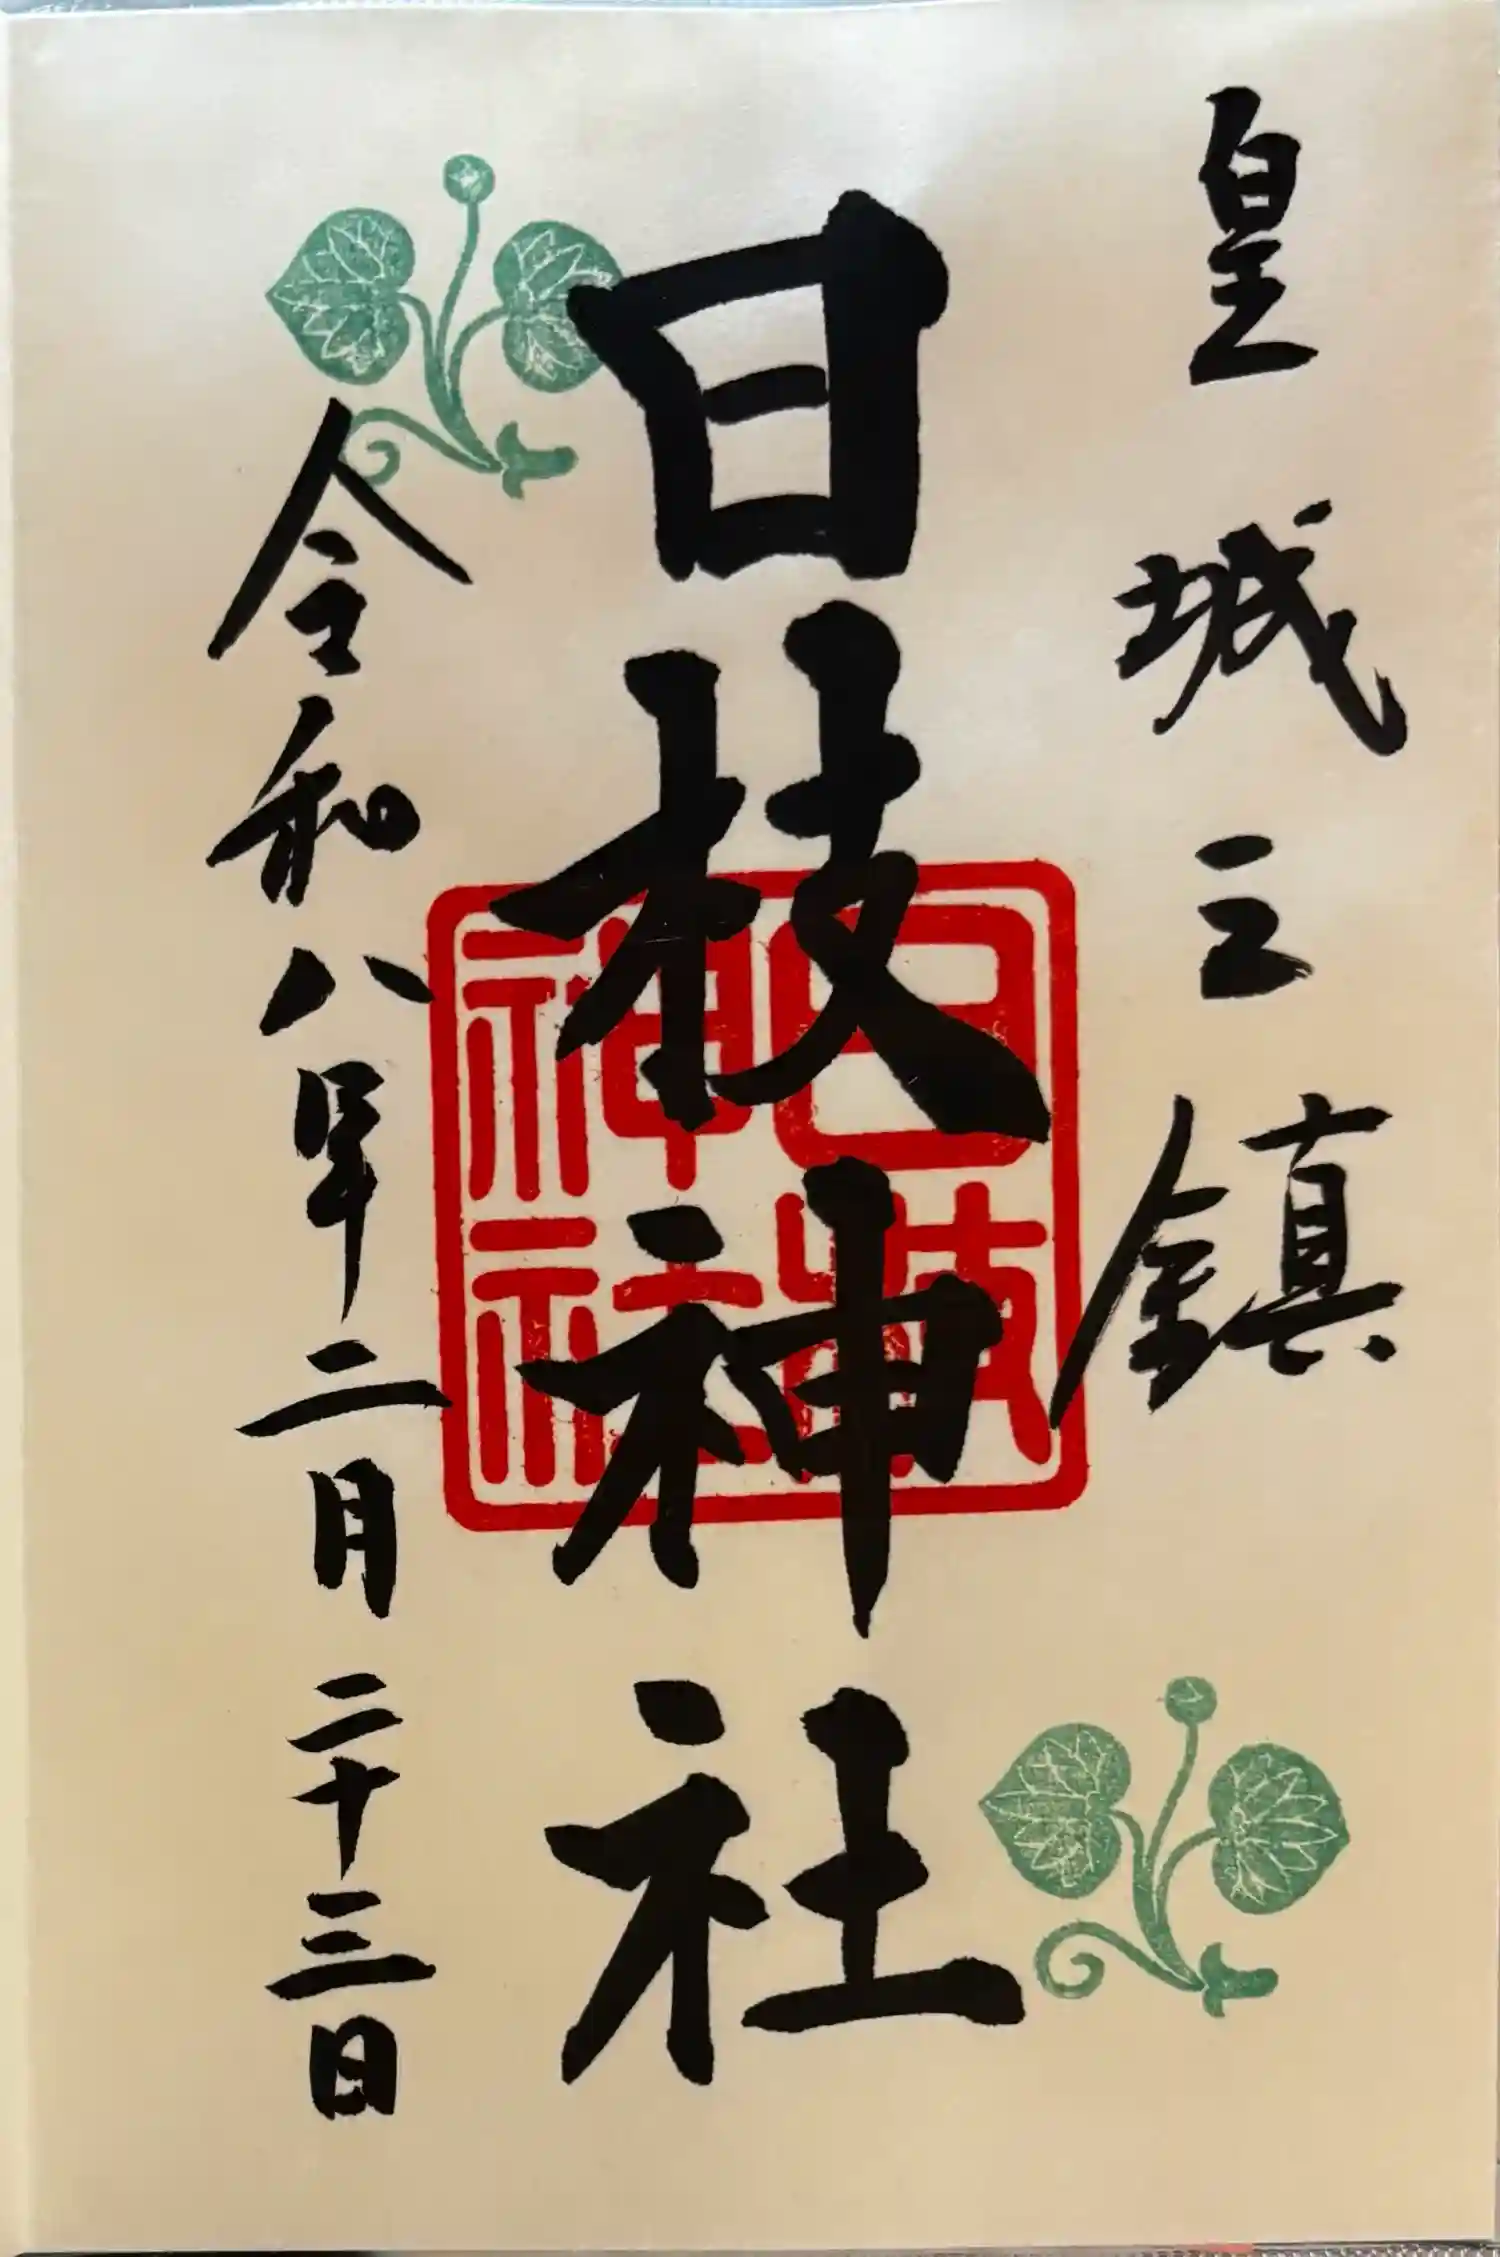 皇城之鎮
日枝神社
日枝
神社
令和八年二月二十三日